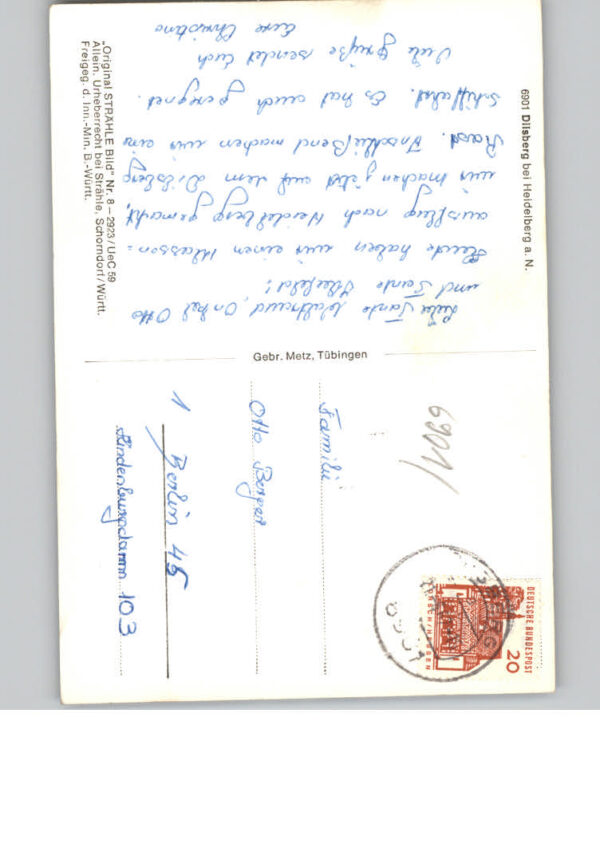 6901 Dilsberg bei Heidelberg a. N.
Liebe Tante Waltraud, Onkel Otto
und Tante
Heute haben wir einen Klassen=
ausflug nach Heidelberg gemacht,
wir machen jetzt auf dem Dilsberg
Rast. Anschließend machen wir eine
Schiffahrt. Es hat auch geregnet.
Viele Grüße sendet Euch
Eure Christine
"Original STRÄHLE Bild" Nr. 8 – 2923 / UeC 59
Allein. Urheberrecht bei Strähle, Schorndorf/Württ.
Freigeg. d. Inn.-Min. B.-Württ.
Gebr. Metz, Tübingen
6901/
DEUTSCHE BUNDESPOST
20
LORSCH/HESSEN
Familie
Otto Berger
1 Berlin 45
Hindenburgdamm 103